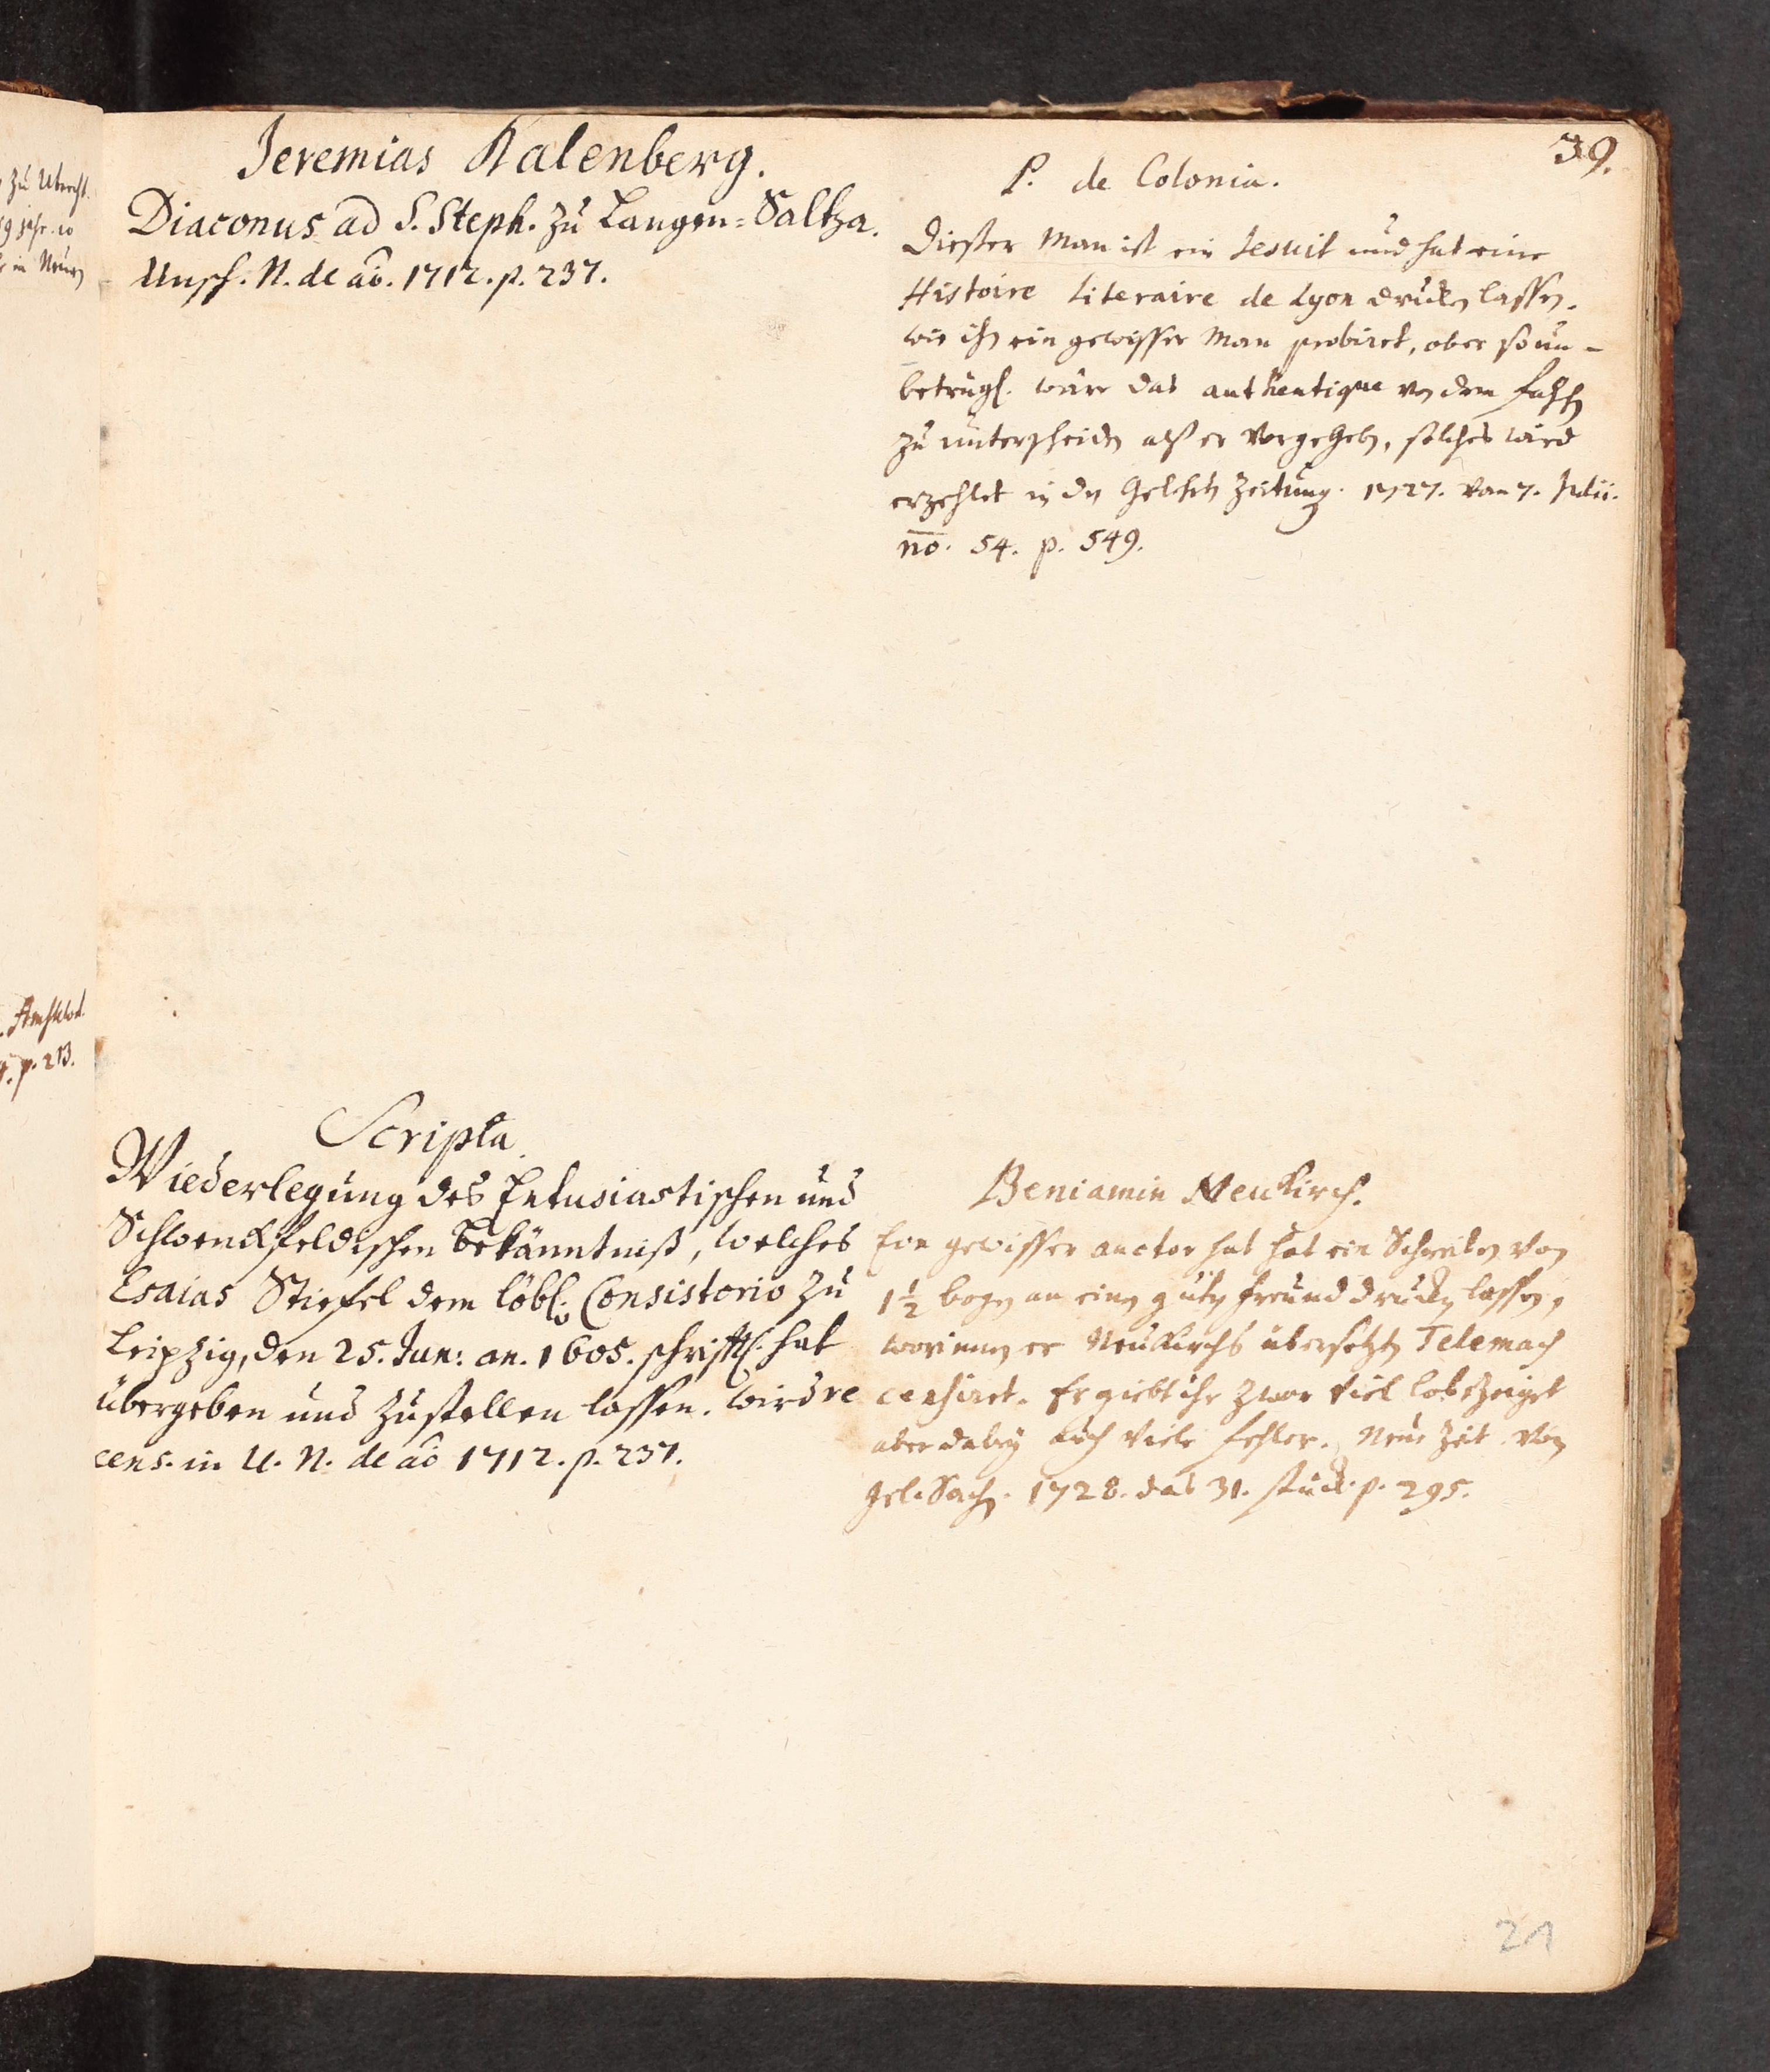 39.
Jeremias Kalenberg.
Diaconus ad S. Steph. zu Langen-Saltza.
Unsch. N. de ao. 1712. p. 237.
Scripta
Wiederlegung des Entusiastischen und
Schwenckfeldischen Bekänntniß, welches
Esaias Stiefel dem löbl. Consistorio zu
Leipzig, den 25. Jun: an. 1605. schrifftl. hat
übergeben und zustellen lassen. wird re
cens. in U. N. de ao 1712. p. 237.
P. de Colonia.
Dießer Man ist ein Jesuit und hat eine
Histoire Literaire de Lyon drucken lassen.
wie ihn ein gewisser Man probiret, ober so un-
betrügl. wäre das authentique von dem falschen
zu unterscheiden alß er vorgegeben, solches wird
erzehlet in den Gelehrten Zeitung. 1727. vom 7. Julii.
no. 54. p. 549.
Beniamin Neukirch.
Ein gewisser auctor hat hat ein Schreiben von
1 1/2 bogen an einen guten freund drucken lassen,
worinnen er Neukirchs übersetzten Telemach
censiret. Er giebt ihr zwar viel lob zeiget
aber dabey auch viele fehler. Neue Zeit. von
gel. Sachen. 1728. das 31. stück. p. 295.
21
zu Utrecht.
in Neuen
p. 213.